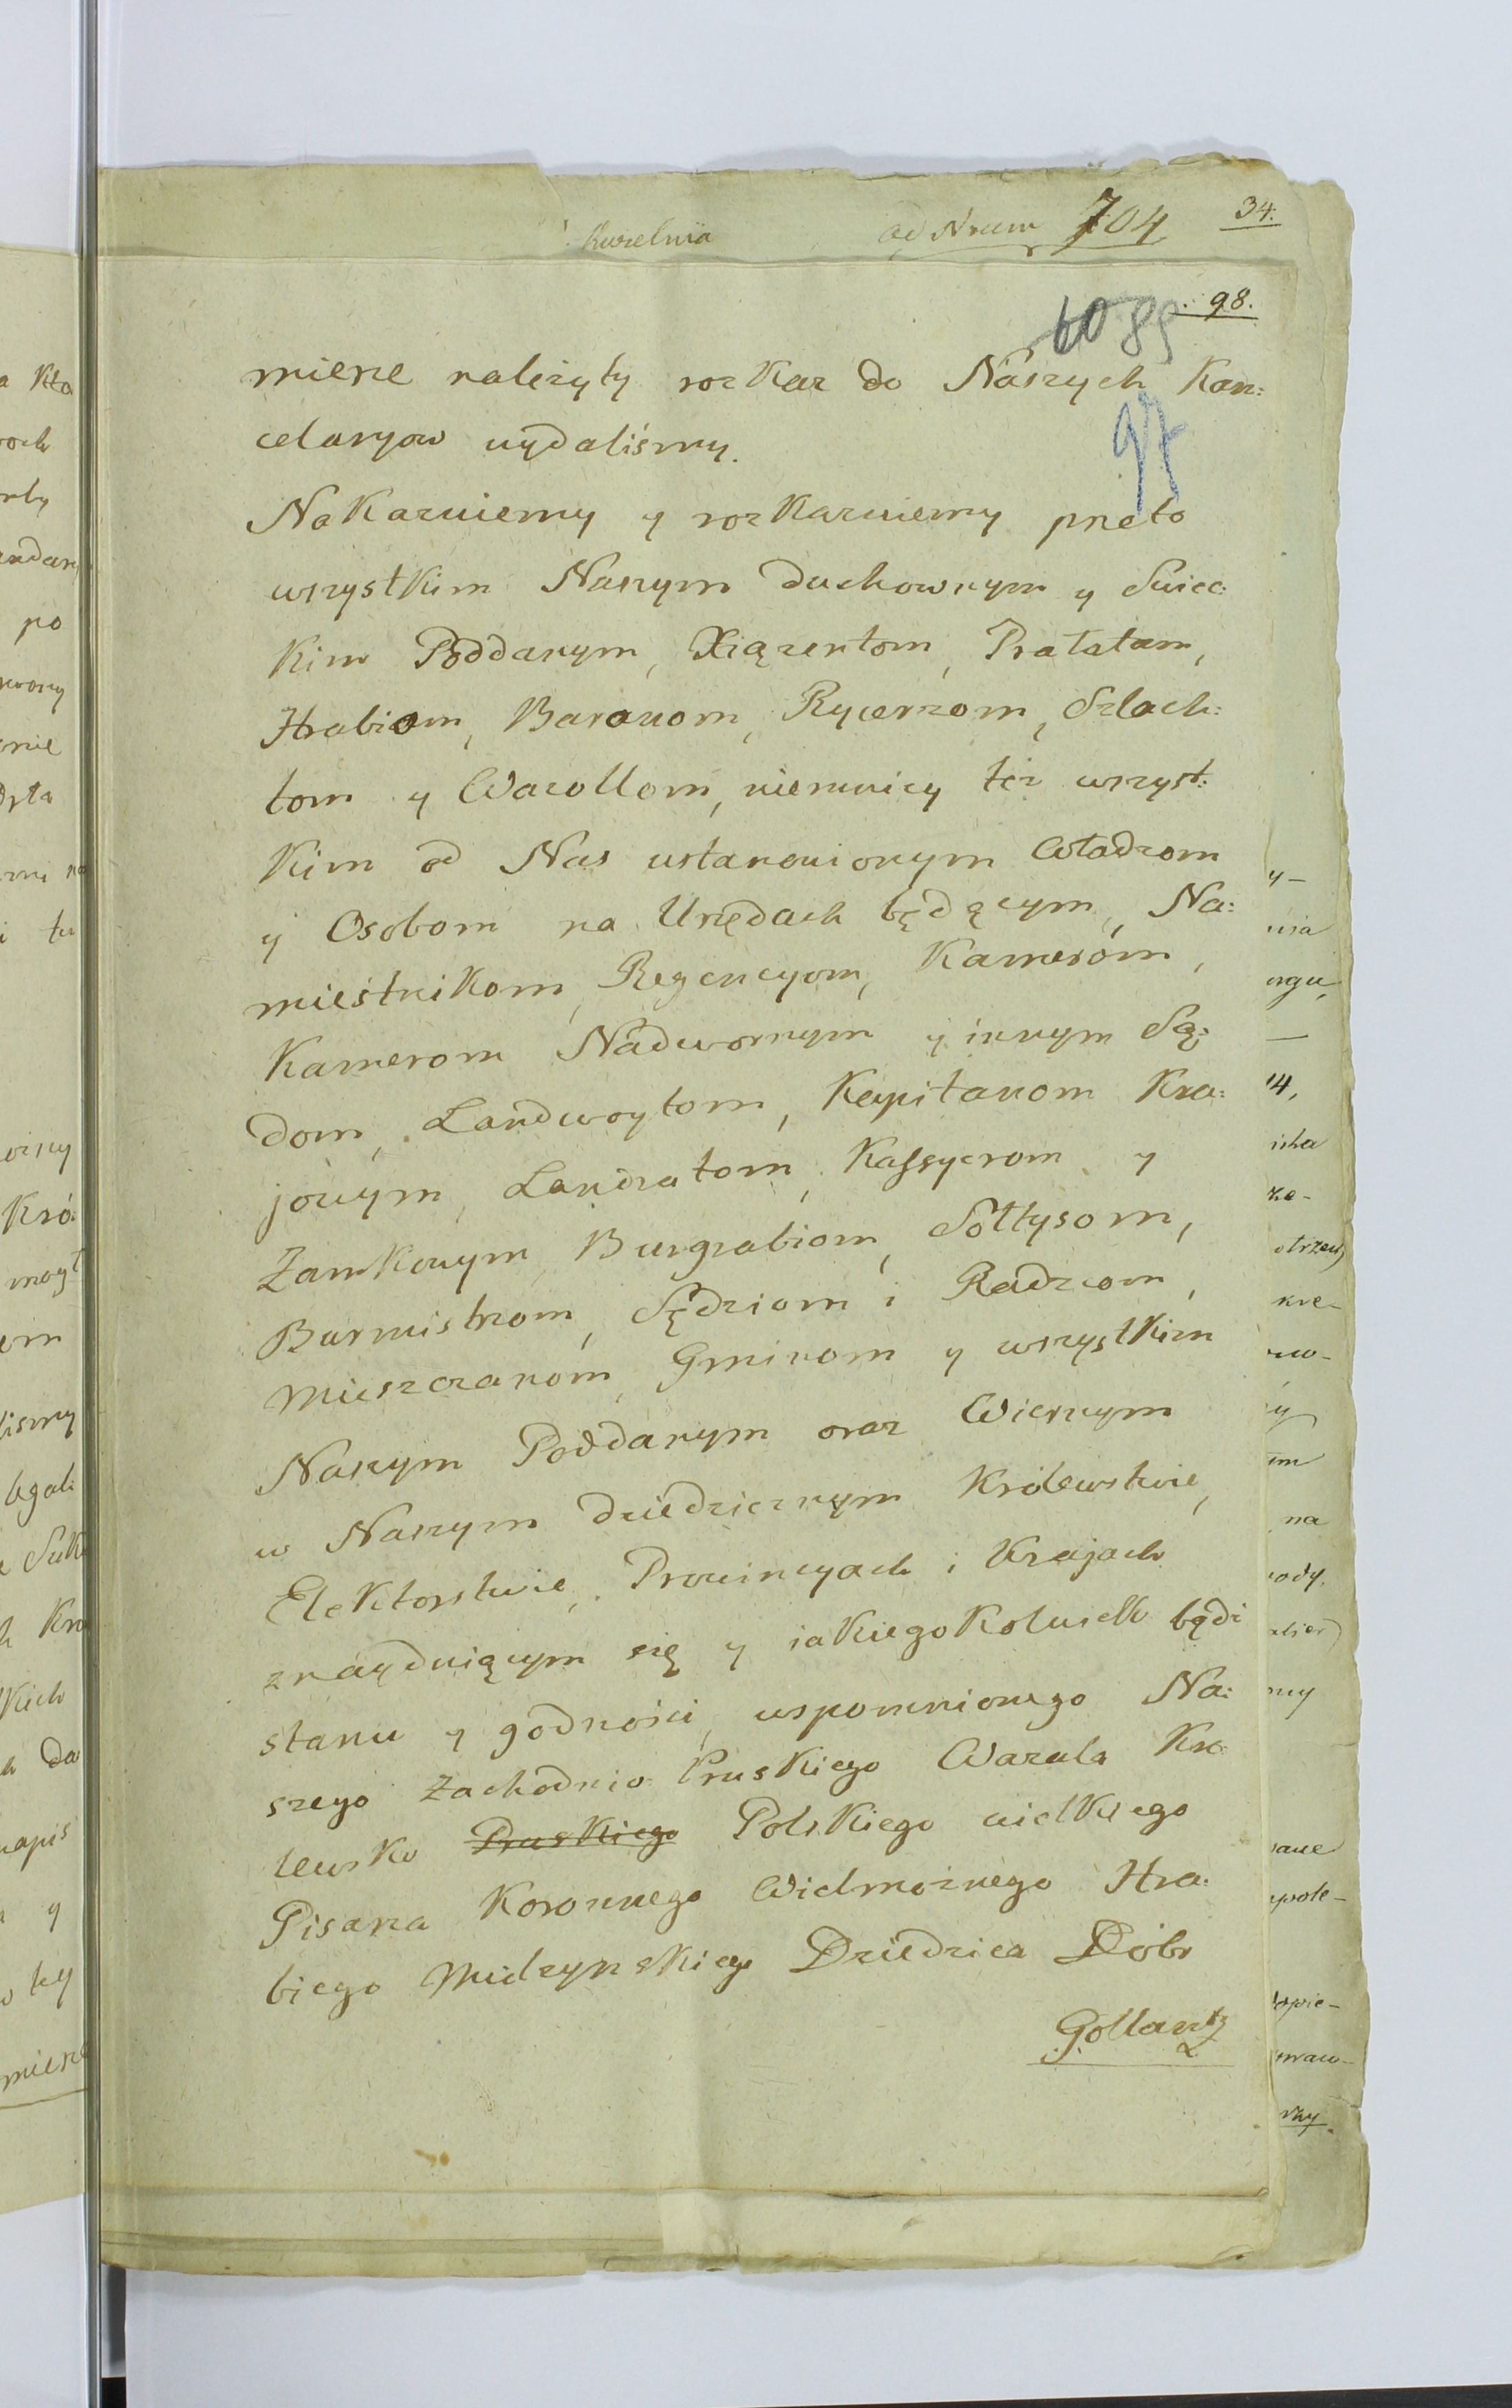 Kuzelnia ad Nrum 704 34.
98.
60 89
97
mieze należyty rozkaz do Naszych Kan:
celaryow wydaliśmy.
Nakazuiemy y rozkazuiemy przeto
wszystkim Naszym Duchownym y Swiec:
kim Poddanym, Xiążentom, Prałatam,
Hrabiom, Baronom, Rycerzom, Szlach:
tom y Wazollom, niemnicy też wszyst:
kim od Nas ustanowionym Władzom
y Osobom na Urzędach będącym, Na:
mieśtnikom, Regencyom, Kamerom,
Kamerom Nadwornym y innym Są:
dom, Landwoytom, Kapitanom Kra:
jowym, Landratom, Kassyerom y
Zamkowym Burgrabiom, Sołtysom,
Burmistrzom, Sędziom i Radzcom,
Mieszczanom, Gminom y wszystkim
Naszym Poddanym oraz Wiernym
w Naszym dziedzicznym Królewstwie,
Elektorstwie, Prowincyach i Krajach
znayduiącym się y iakiegokolwiek bądź
stanu y godności, wspomnionego Na:
szego Zachodnio Pruskiego Wazala Kro
lewsko Pruskiego Polskiego wielkiego
Pisarza Koronnego Wielmożnego Hra:
biego Mielzynskiego Dziedzica Dóbr
Gollantz